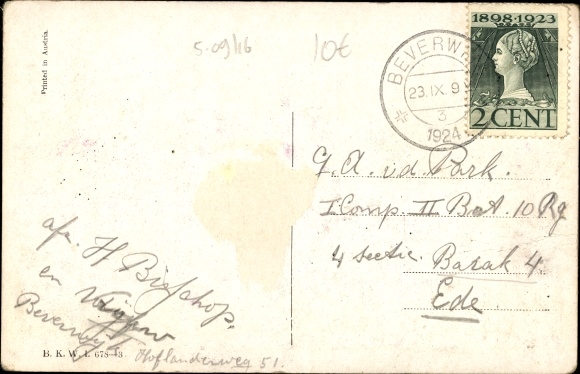 Printed in Austria.
5-09/16
10€
BEVERW
23.IX.9
3
1924
1898·1923
2 CENT
G. A. v.d Park.
I Comp. II Bat. 10 Rg
4 sectie Barak 4
Ede
afz. H Bisschop.
en
Beverwijk
Hoflanderweg 51.
B. K. W. I. 678-13